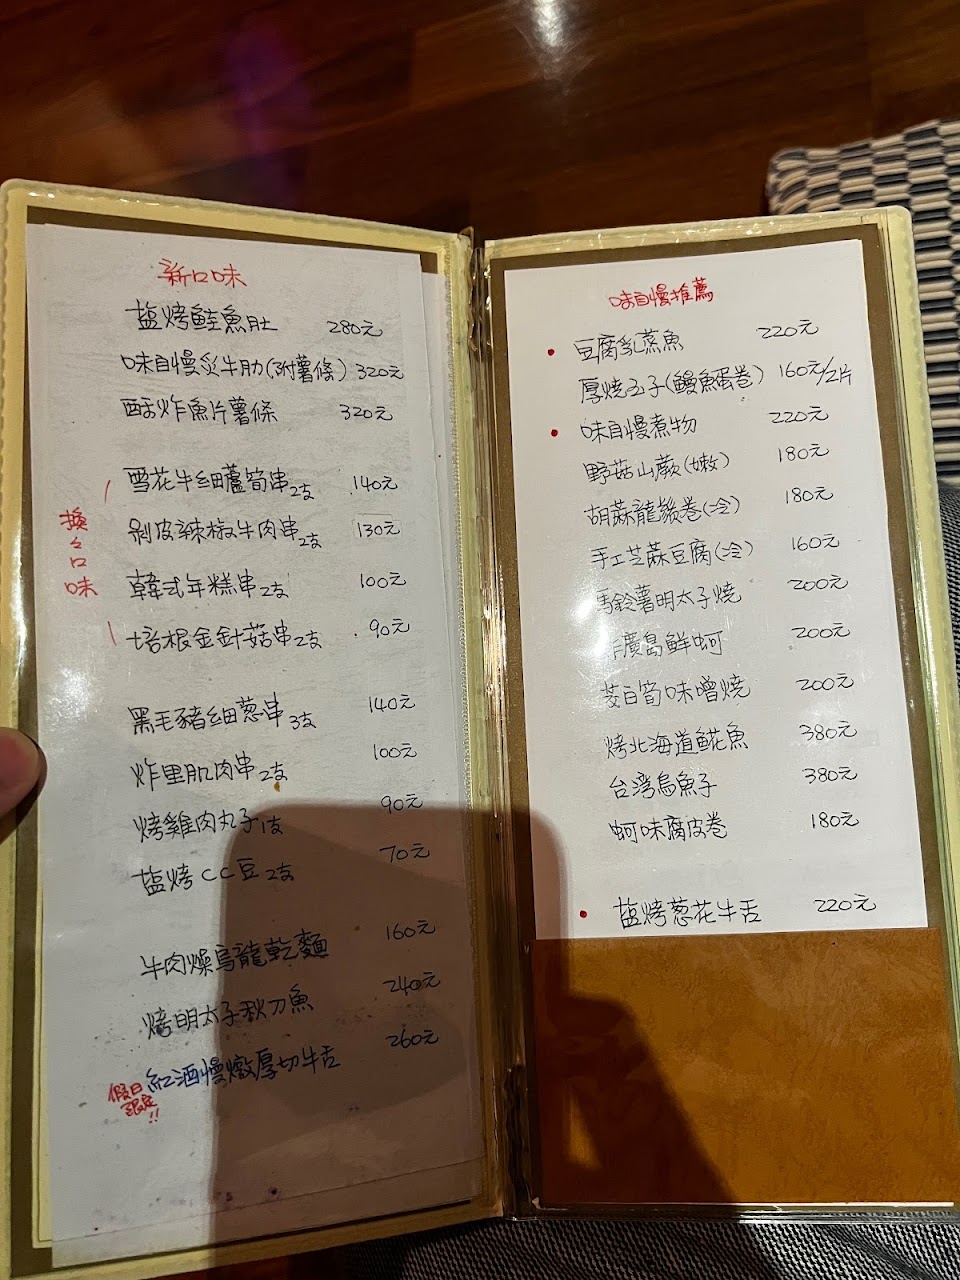 新口味
塩烤鮭魚肚 280元
味自慢炙牛肋(附薯條) 320元
酥炸魚片薯條 320元
換々口味
雪花牛細蘆筍串2支 140元
剝皮辣椒牛肉串2支 130元
韓式年糕串2支 100元
培根金針菇串2支 90元
黑毛豬細蔥串3支 140元
炸里肌肉串2支 100元
烤雞肉丸子1支 90元
塩烤CC豆2支 70元
牛肉燥烏龍乾麵 160元
烤明太子秋刀魚 240元
假日限定!!
紅酒慢燉厚切牛舌 260元
味自慢推薦
豆腐乳蒸魚 220元
厚燒玉子(鰻魚蛋卷) 160元/2片
味自慢煮物 220元
野菇山蕨(嫩) 180元
胡蔴龍鬚卷(冷) 180元
手工芝蔴豆腐(冷) 160元
馬鈴薯明太子燒 200元
廣島鮮蚵 200元
茭白筍味噌燒 200元
烤北海道鯱魚 380元
台湾烏魚子 380元
蚵味腐皮卷 180元
塩烤蔥花牛舌 220元